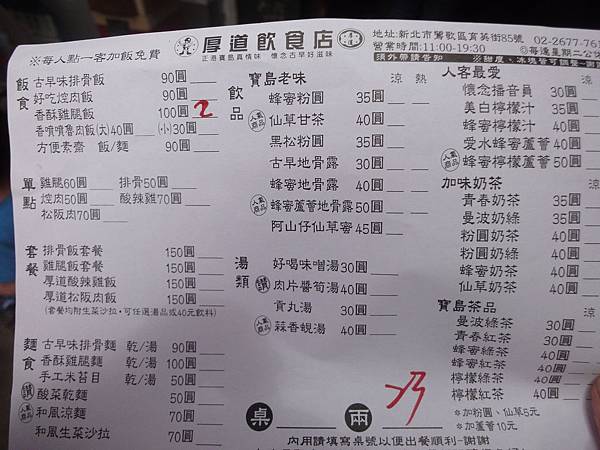 ※每人點一客加飯免費
厚道飲食店
正港寶島真情味 懷念古早好滋味
地址:新北市鶯歌區育英街85號 02-2677-761
營業時間:11:00-19:30 ◎每逢星期二公休
須外帶請告知
飯食
古早味排骨飯 90圓
好吃焢肉飯 90圓
香酥雞腿飯 100圓 2
香噴噴魯肉飯(大)40圓 (小)30圓
方便素齋 飯/麵 90圓
單點
雞腿60圓 排骨50圓
焢肉50圓 酸辣雞70圓
松阪肉70圓
套餐
排骨飯套餐 150圓
雞腿飯套餐 150圓
厚道酸辣雞飯 150圓
厚道松阪肉飯 150圓
(套餐均附生菜沙拉,可任選湯品或40元飲料)
麵食
古早味排骨麵 乾/湯 90圓
香酥雞腿麵 乾/湯 100圓
手工米苔目 乾/湯 50圓
讚 酸菜乾麵 50圓
人氣商品 和風涼麵 70圓
和風生菜沙拉 70圓
飲品
寶島老味 涼 熱
蜂蜜粉圓 35圓
人氣商品 仙草甘茶 40圓
黑松粉圓 35圓
古早地骨露 30圓
蜂蜜地骨露 40圓
人氣商品 蜂蜜蘆薈地骨露50圓
阿山仔仙草蜜 45圓
湯類
好喝味噌湯30圓
讚 肉片醬筍湯40圓
貢丸湯 30圓
人氣商品 蒜香蜆湯 40圓
桌 兩
人客最愛 涼
懷念播音員 30圓
美白檸檬汁 35圓
蜂蜜檸檬汁 40圓
愛水蜂蜜蘆薈 40圓
人氣商品 蜂蜜檸檬蘆薈 50圓
加味奶茶 涼
青春奶茶 35圓
曼波奶綠 35圓
粉圓奶茶 40圓
粉圓奶綠 40圓
蜂蜜奶茶 40圓
仙草奶茶 40圓
寶島茶品 涼
曼波綠茶 30圓
青春紅茶 30圓
蜂蜜綠茶 40圓
蜂蜜紅茶 40圓
檸檬綠茶 40圓
檸檬紅茶 40圓
*加粉圓、仙草5元
*加蘆薈10元
內用請填寫桌號以便出餐順利-謝謝